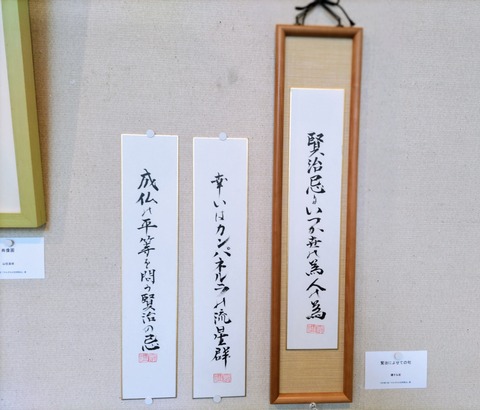 賢治忌 いつか世の為人の為
幸いはカンパネルラの流星群
成仏の平等を問う賢治の忌
賢治によせての句